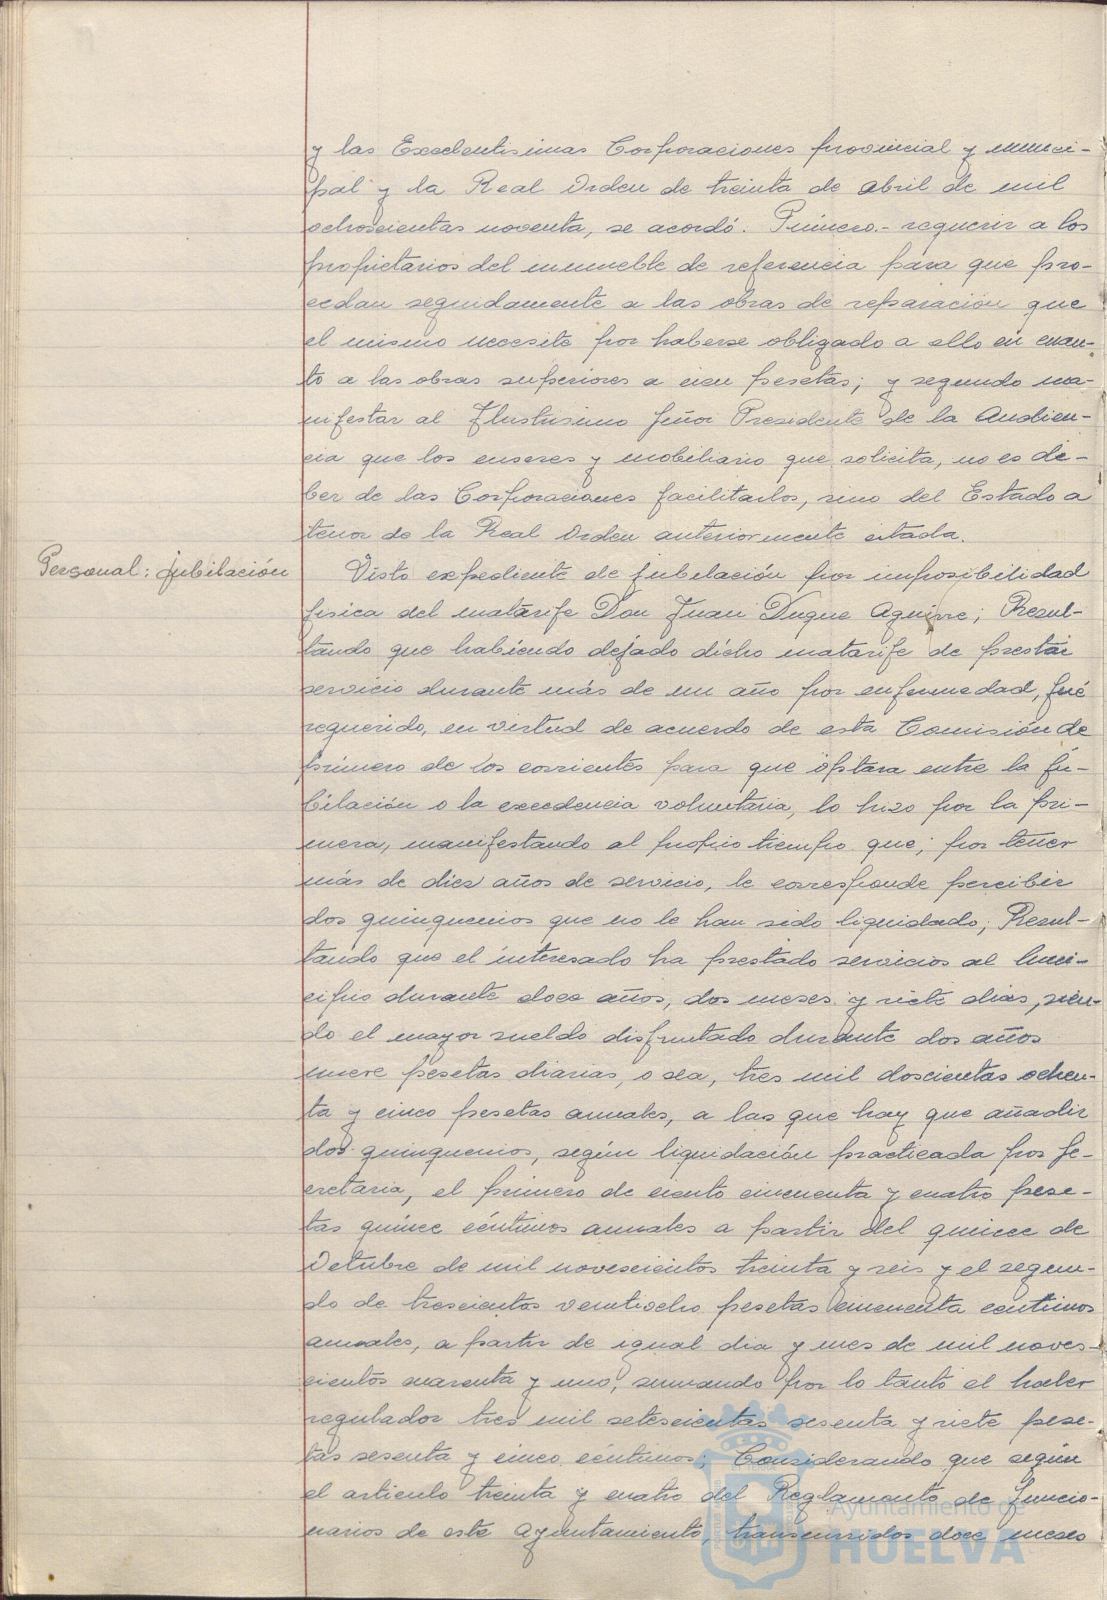 y las Excelentisimas Corporaciones provincial y munici-
pal y la Real Orden de treinta de abril de mil
ochoscientas noventa, se acordó. Primero.- requerir a los
propietarios del inmueble de referencia para que pro-
cedan seguidamente a las obras de reparación que
el mismo necesite por haberse obligado a ello en cuan-
to a las obras superiores a cien pesetas; y segundo ma-
nifestar al Ilustrisimo Señor Presidente de la Audien-
cia que los enseres y mobiliario que solicita, no es de-
ber de las Corporaciones facilitarlos, sino del Estado a
tenor de la Real Orden anteriormente citada.
Personal: jubilación
Visto expediente de jubilación por imposibilidad
fisica del matarife Don Juan Duque Aguirre; Resul-
tando que habiendo dejado dicho matarife de prestar
servicio durante más de un año por enfermedad, fué
requerido, en virtud de acuerdo de esta Comisión de
primero de los corrientes para que optara entre la ju-
bilación o la excedencia voluntaria, lo hizo por la pri-
mera, manifestando al propio tiempo que; por tener
más de diez años de servicio, le corresponde percibir
dos quinquenios que no le han sido liquidado; Resul-
tando que el interesado ha prestado servicios al Muni-
cipio durante doce años, dos meses y siete dias, sien-
do el mayor sueldo disfrutado durante dos años
nueve pesetas diarias, o sea, tres mil doscientas ochen-
ta y cinco pesetas anuales, a las que hay que añadir
dos quinquenios, según liquidación practicada por Se-
cretaria, el primero de ciento cincuenta y cuatro pese-
tas quince céntimos anuales a partir del quince de
Octubre de mil novescientos treinta y seis y el segun-
do de trescientos veintiocho pesetas cincuenta centimos
anuales, a partir de igual dia y mes de mil noves-
cientos cuarenta y uno, sumando por lo tanto el haber
regulador tres mil setescientas sesenta y siete pese-
tas sesenta y cinco céntimos; Considerando que según
el articulo treinta y cuatro del Reglamento de Funcio-
narios de este Ayuntamiento, transcurridos doce meses
Ayuntamiento de
HUELVA